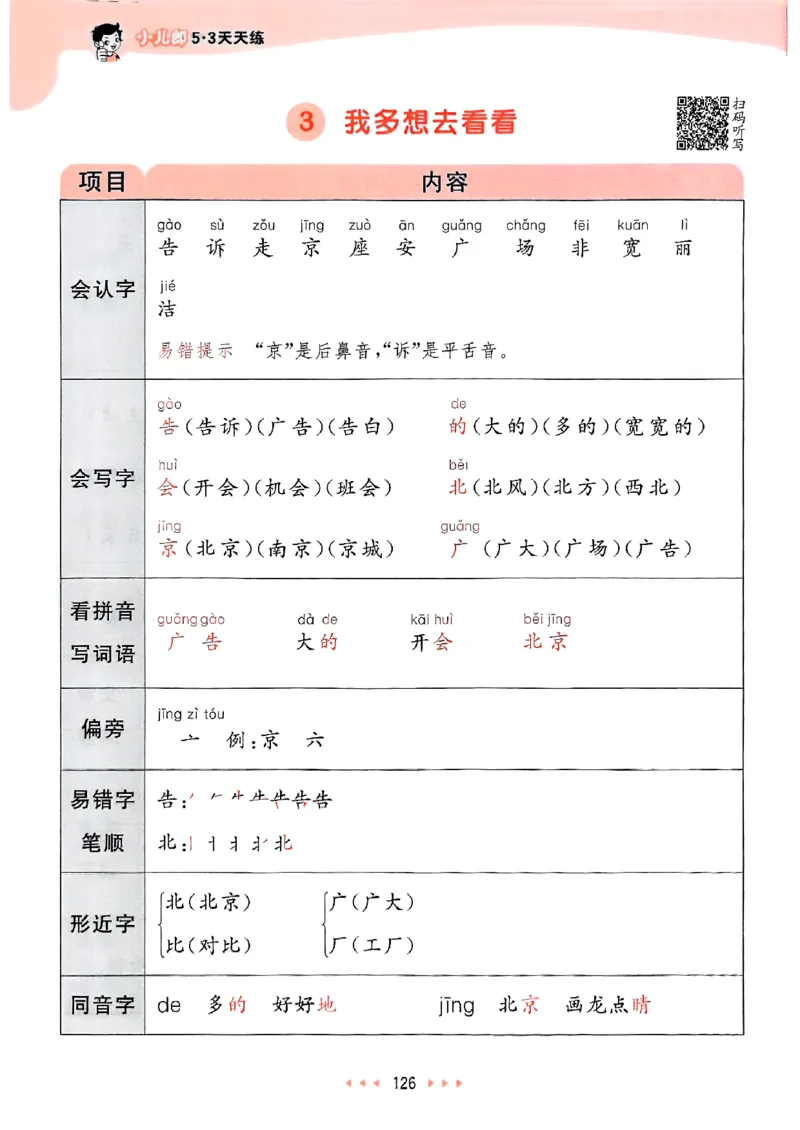 小儿郎 5·3天天练
3 我多想去看看
扫码听写
项目 内容
会认字
gào sù zǒu jīng zuò ān guǎng chǎng fēi kuān lì
告 诉 走 京 座 安 广 场 非 宽 丽
jié
洁
易错提示 “京”是后鼻音，“诉”是平舌音。
会写字
gào de
告(告诉)(广告)(告白) 的(大的)(多的)(宽宽的)
huì běi
会(开会)(机会)(班会) 北(北风)(北方)(西北)
jīng guǎng
京(北京)(南京)(京城) 广(广大)(广场)(广告)
看拼音
写词语
guǎng gào dà de kāi huì běi jīng
广告 大的 开会 北京
偏旁
jīng zì tóu
亠 例:京 六
易错字
笔顺
告:
北:
形近字
北(北京) 广(广大)
比(对比) 厂(工厂)
同音字 de 多的 好好地 jīng 北京 画龙点睛
126